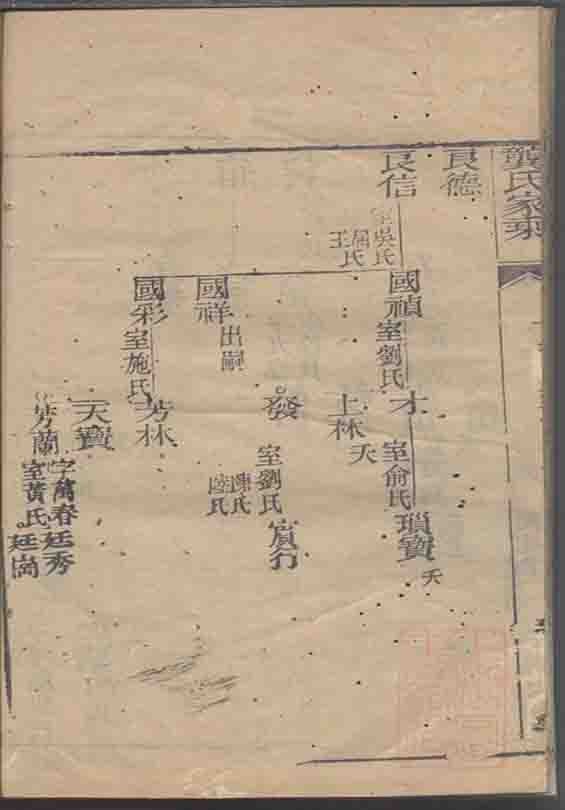 氏家乘
良德
良信
室吳氏
王氏
國禎
室劉氏
國祥
出嗣
國彩
室施氏
才
室俞氏
瑣寶
夭
上林
夭
發
室劉氏
氏
氏
賓行
芳林
天寶
芳蘭
字萬春
室黃氏
廷秀
廷嵩